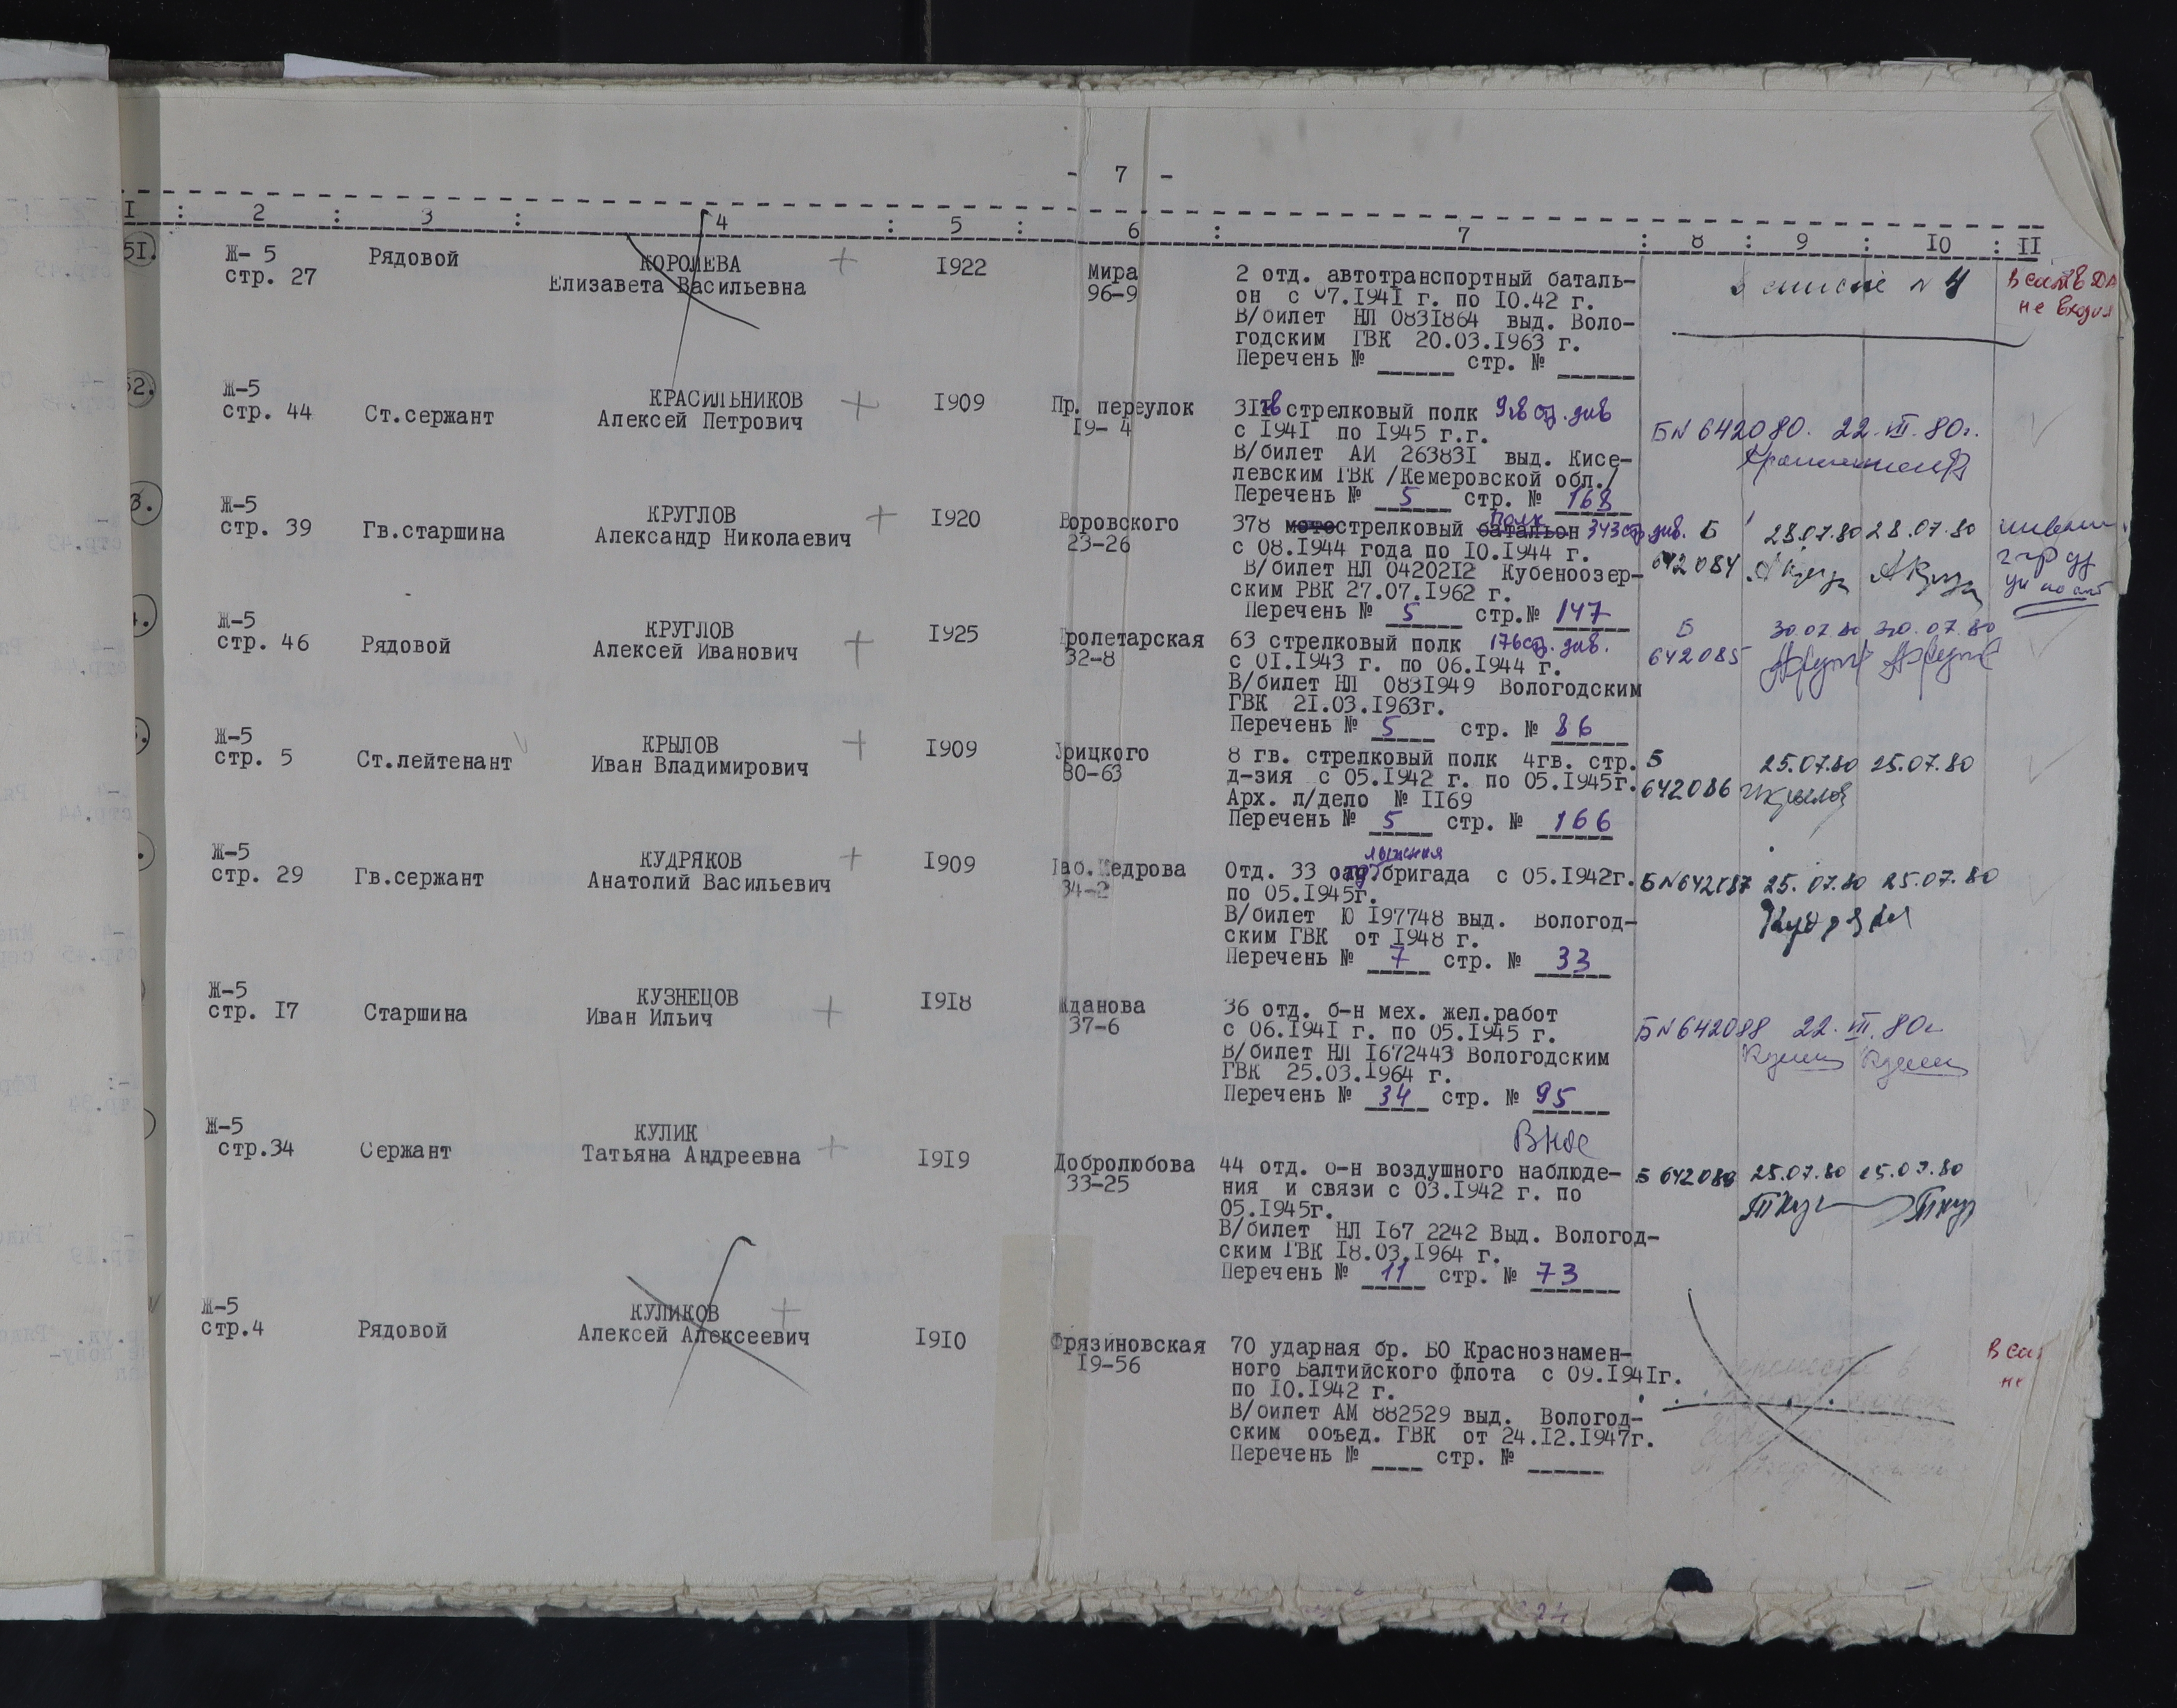 - 7 -
I : 2 : 3 : 4 : 5 : 6 : 7 : 8 : 9 : IO : II
51.
Ж- 5
стр. 27
Рядовой
КОРОЛЕВА
Елизавета Васильевна
+
I922
Мира
96-9
2 отд. автотранспортный баталь-
он с 07.I94I г. по IO.42 г.
В/билет НЛ 083I864 выд. Воло-
годским ГВК 20.03.I963 г.
Перечень № стр. №
в списке № 4
не входил
52.
Ж-5
стр. 44
Ст.сержант
КРАСИЛЬНИКОВ
Алексей Петрович
+
I909
Пр. переулок
I9- 4
стрелковый полк
с I94I по I945 г.г.
В/билет АИ 26383I выд. Кисе-
левским ГВК /Кемеровской обл./
Перечень № 5 стр. № 168
БN 642080. 22.VII.80г.
3.
Ж-5
стр. 39
Гв.старшина
КРУГЛОВ
Александр Николаевич
+
I920
Воровского
23-26
полк
378 мотострелковый батальон 343 стр. див.
с 08.I944 года по IO.I944 г.
В/билет НЛ 04202I2 Кубеноозер-
ским РВК 27.07.I962 г.
Перечень № 5 стр.№ 147
Б
642084
28.07.80 28.07.80
4.
Ж-5
стр. 46
Рядовой
КРУГЛОВ
Алексей Иванович
+
I925
Пролетарская
32-8
63 стрелковый полк 176 стр. див.
с OI.I943 г. по 06.I944 г.
В/билет НЛ 083I949 Вологодским
ГВК 2I.03.I963г.
Перечень № 5 стр. № 86
Б
642085
30.07.80 30.07.80
Ж-5
стр. 5
Ст.лейтенант
КРЫЛОВ
Иван Владимирович
+
I909
Урицкого
80-63
8 гв. стрелковый полк 4гв. стр.
д-зия с 05.I942 г. по 05.I945г.
Арх. л/дело № II69
Перечень № 5 стр. № 166
Б
642086
25.07.80 25.07.80
Ж-5
стр. 29
Гв.сержант
КУДРЯКОВ
Анатолий Васильевич
+
I909
Наб.Кедрова
34-2
лыжная
Отд. 33 бригада с 05.I942г.
по 05.I945г.
В/билет Ю I97748 выд. Вологод-
ским ГВК от I948 г.
Перечень № 7 стр. № 33
БN642087 25.07.80 25.07.80
Ж-5
стр. I7
Старшина
КУЗНЕЦОВ
Иван Ильич
+
I9I8
Жданова
37-6
36 отд. б-н мех. жел.работ
с 06.I94I г. по 05.I945 г.
В/билет НЛ I672443 Вологодским
ГВК 25.03.I964 г.
Перечень № 34 стр. № 95
БN642088 22.VII.80г
Ж-5
стр.34
Сержант
КУЛИК
Татьяна Андреевна
+
I9I9
Добролюбова
33-25
ВНОС
44 отд. б-н воздушного наблюде-
ния и связи с 03.I942 г. по
05.I945г.
В/билет НЛ I67 2242 Выд. Вологод-
ским ГВК I8.03.I964 г.
Перечень № 11 стр. № 73
Б 642089 25.07.80 25.07.80
Ж-5
стр.4
Рядовой
КУЛИКОВ
Алексей Алексеевич
+
I9IO
Фрязиновская
I9-56
70 ударная бр. БО Краснознамен-
ного Балтийского флота с 09.I94Iг.
по IO.I942 г.
В/билет АМ 882529 выд. Вологод-
ским объед. ГВК от 24.I2.I947г.
Перечень № стр. №